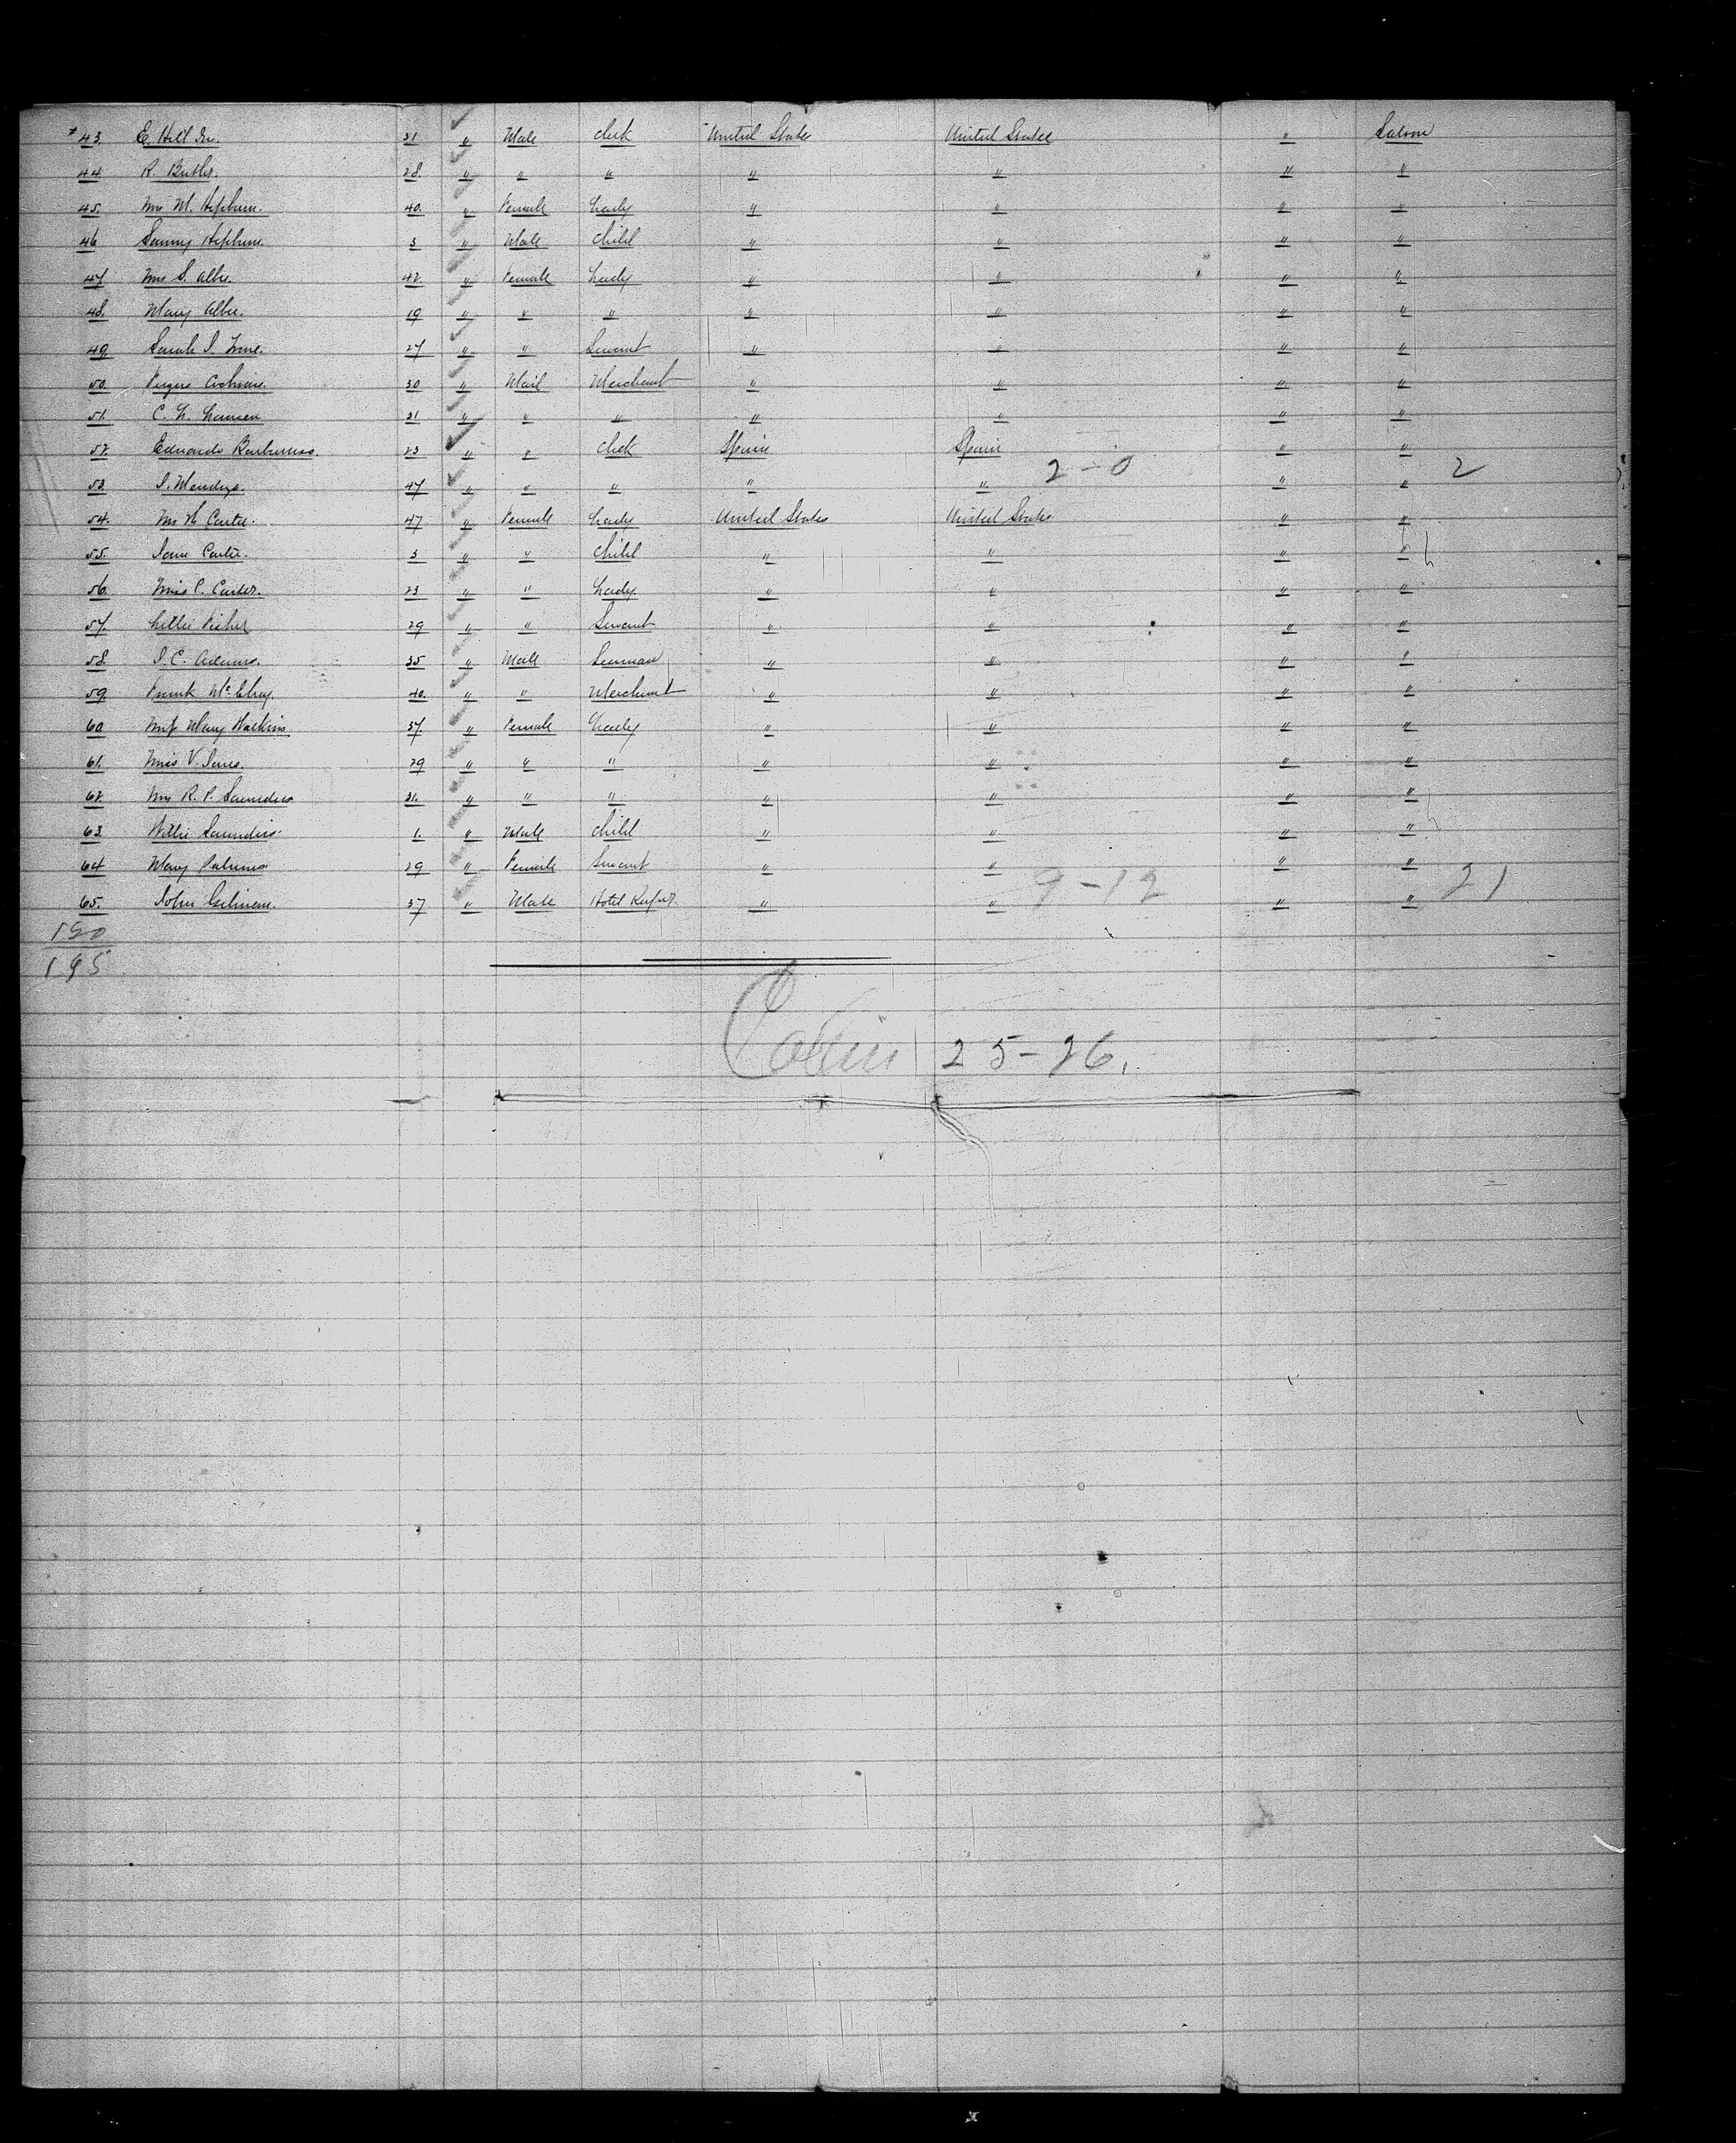 43. E. Hill Jr. 31 " Male clerk United States United States " Saloon
44. R. Butler. 28. " " " " " " "
45. Mrs M. Hepburn. 40. " Female Lady " " " "
46 Sammy Hepburn. 3 " Male child " " " "
47. Mrs S. Albee. 42. " Female Lady " " " "
48. Mary Albee. 19 " " " " " " "
49. Sarah I. 27 " " Servant " " " "
50. Cochrane. 30 " Mail Merchant " " " "
51. C. H. 31 " " " " " " "
52. Eduardo 23 " " clerk Spain Spain " "
2 - 0 2
53. 47 " " " " " " "
54. Mrs H. Carter. 47 " Female Lady United States United States " "
55. Carter. 3 " " child " " " "
56. Miss C. Carter. 23 " " Lady " " " "
57. Lillie Fisher 29 " " Servant " " " "
58. I. C. Adams. 35 " Male Seaman " " " "
59. Frank McElroy 40. " " Merchant " " " "
60 Mary Watkins 37. " Female Lady " " " "
61. Miss V. Jones. 29 " " " " " " "
62. Mrs R. P. Saunders 31. " " " " " " "
63. Willie Saunders 1. " Male child " " " "
64 Mary 29 " Female Servant " " " "
9 - 12 21
65. John Gilman. 37 " Male Hotel Keeper. " " " "
130
195
Cabin 25-26.